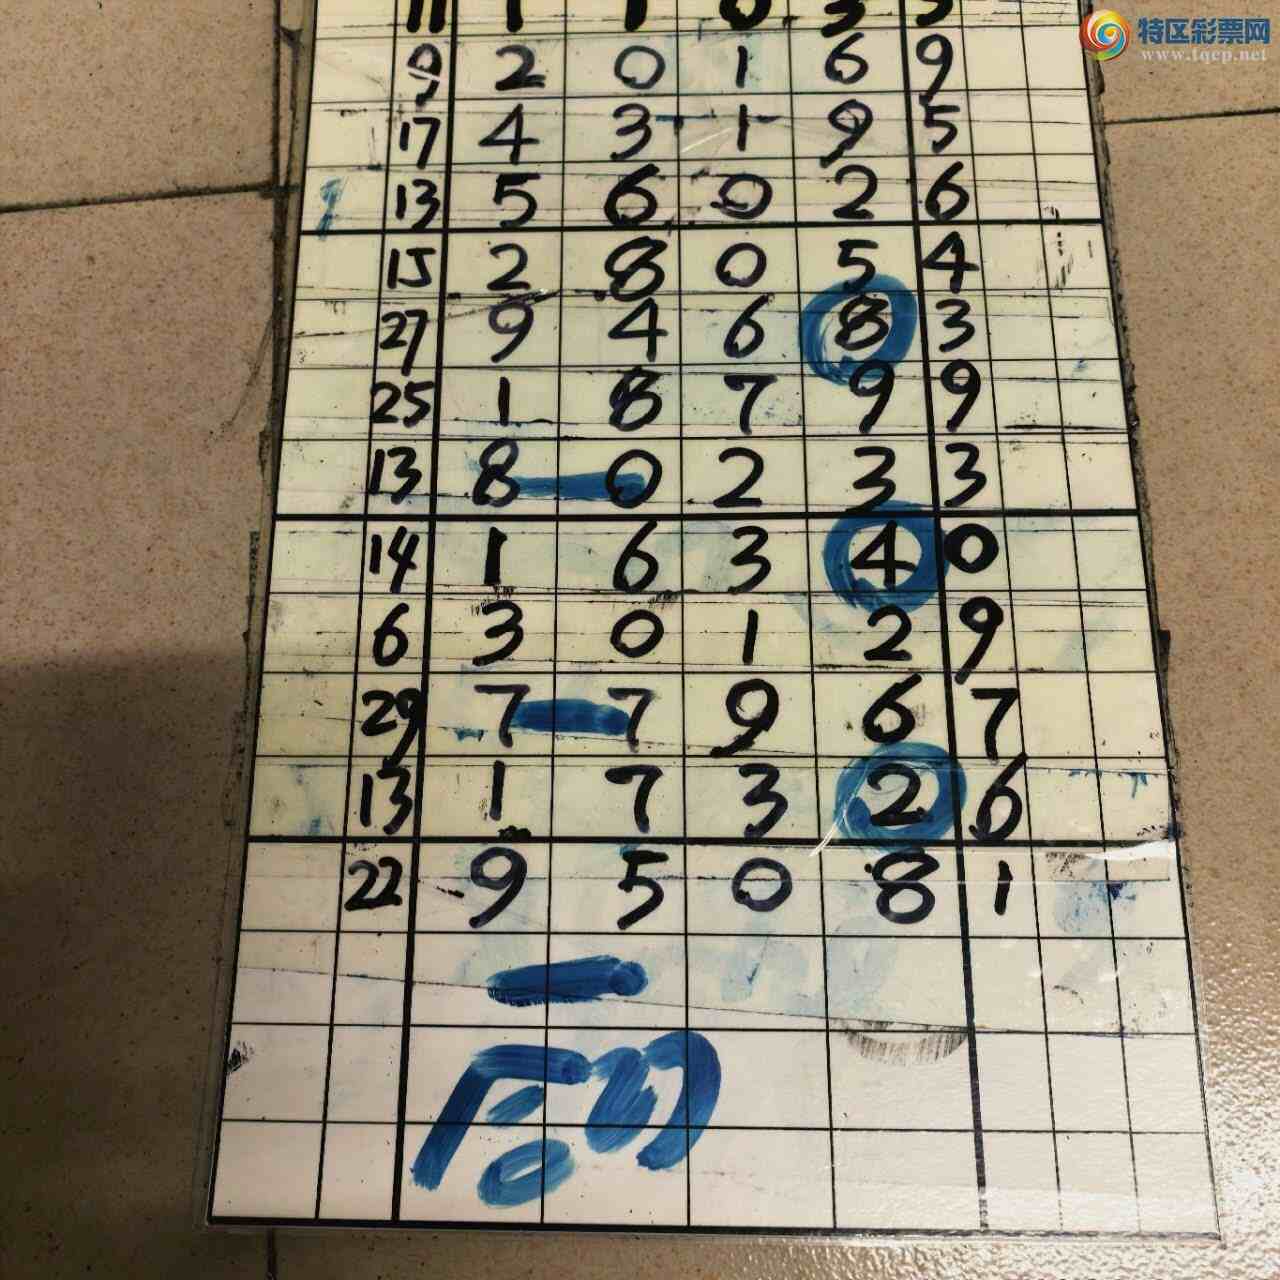 特区彩票网
www.tqcp.net
11 1 1 0 3 5
9 2 0 1 6 9
17 4 3 1 9 5
13 5 6 0 2 6
15 2 8 0 5 4
27 9 4 6 8 3
25 1 8 7 9 9
13 8 0 2 3 3
14 1 6 3 4 0
6 3 0 1 2 9
29 7 7 9 6 7
13 1 7 3 2 6
22 9 5 0 8 1